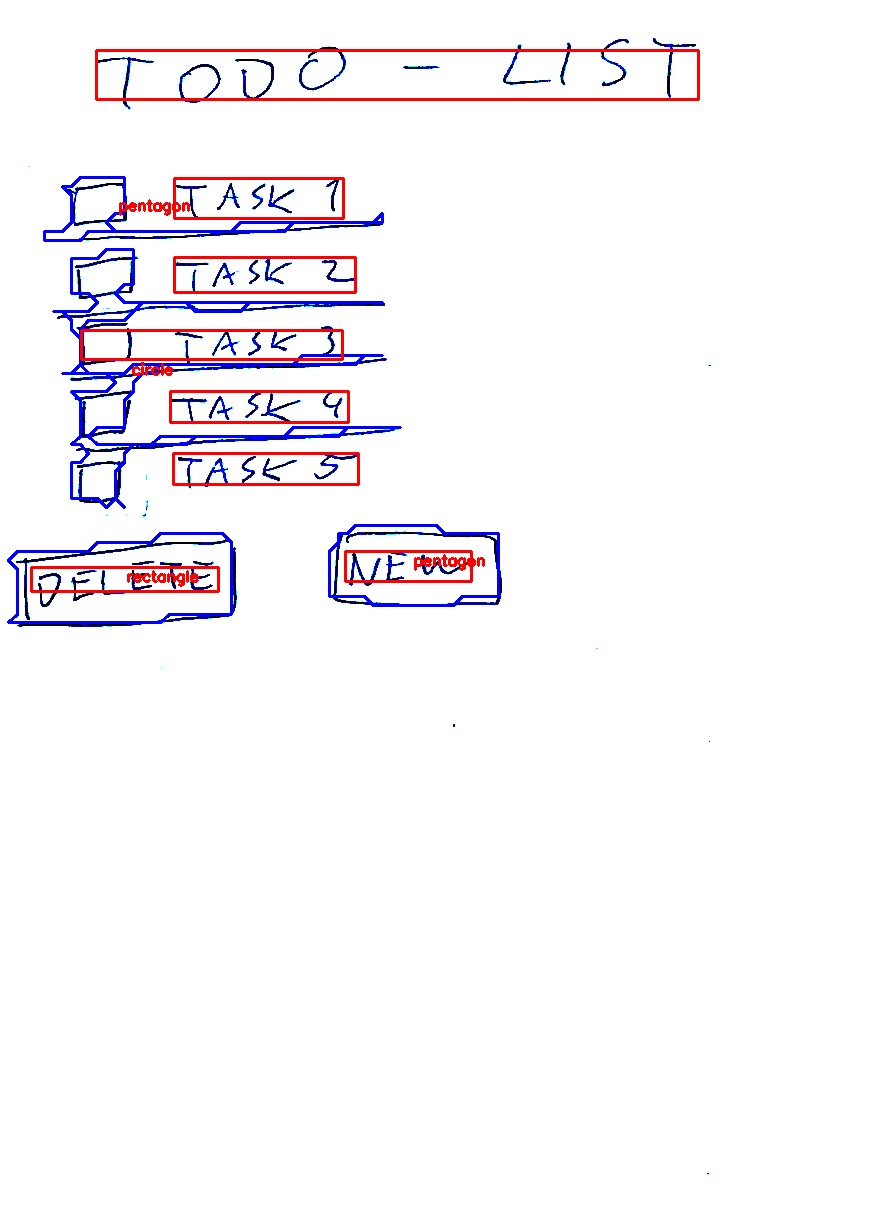 TODO - LIST
pentagon TASK 1
TASK 2
TASK 3
circle
TASK 4
TASK 5
DELETE rectangle NEW pentagon